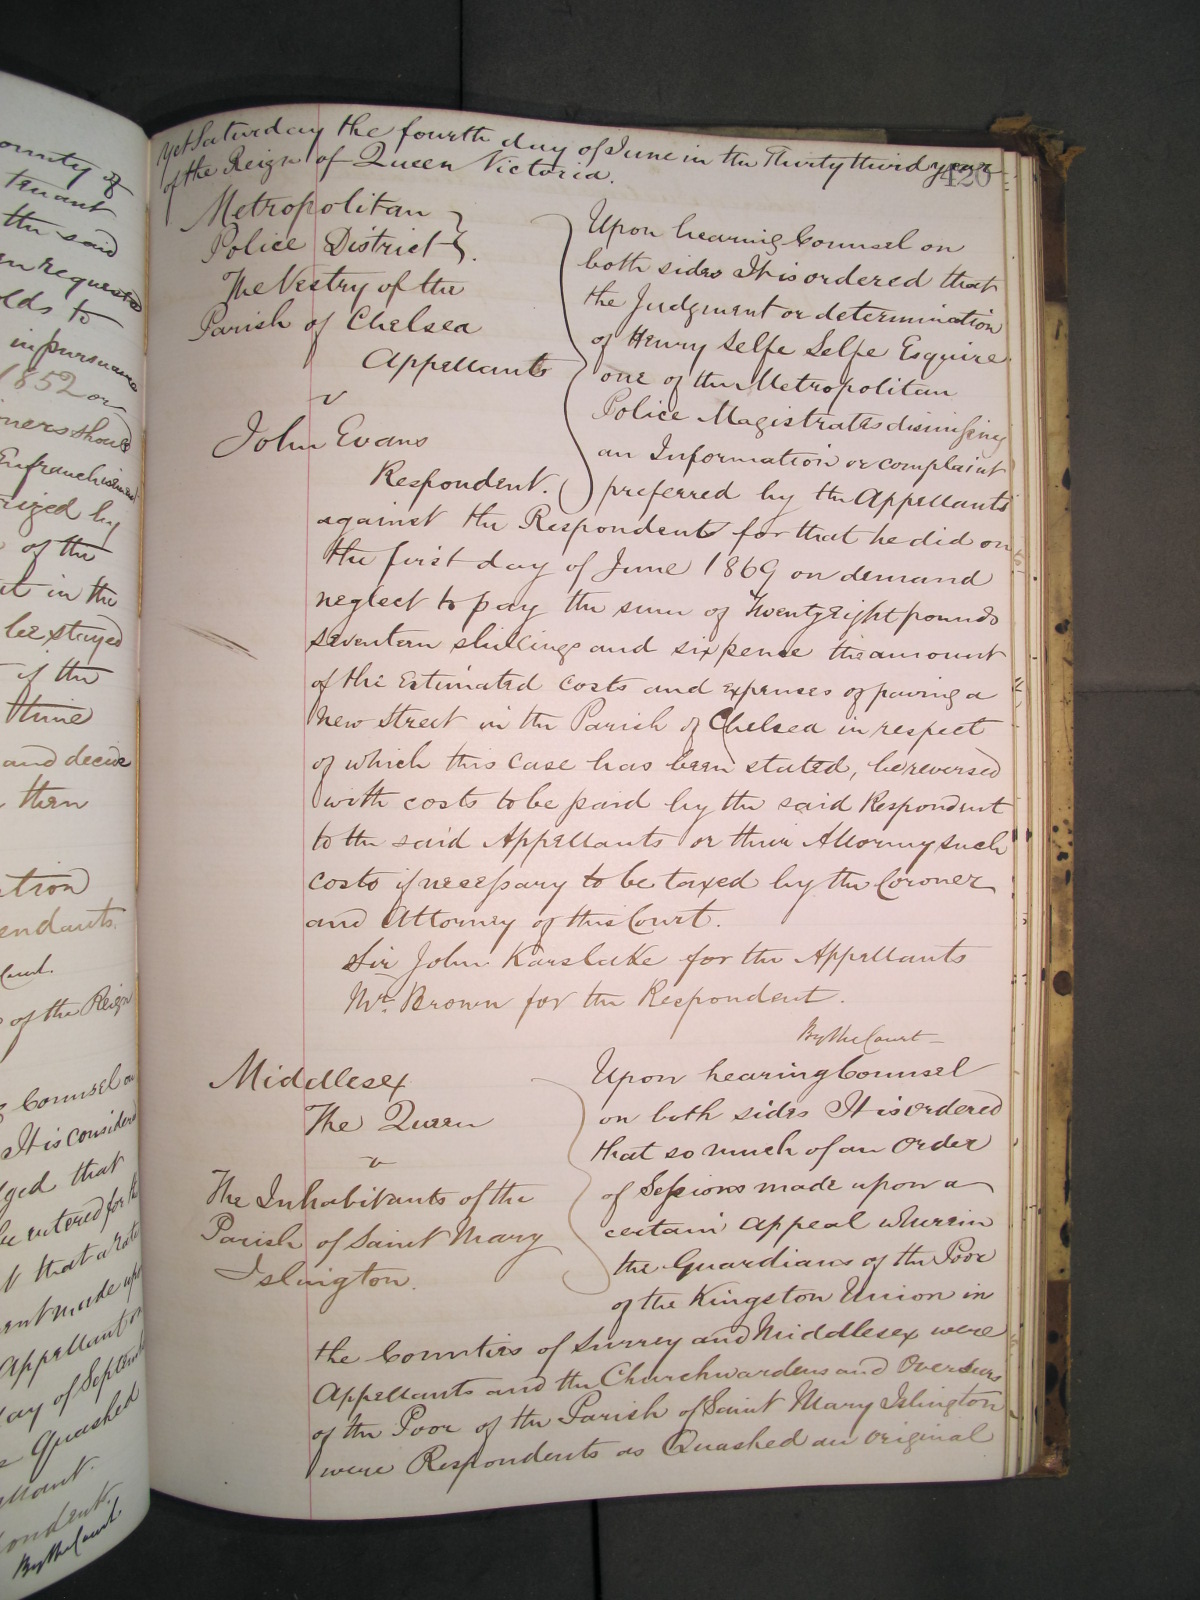 ounty of
tenant
the said
en requested
olds to
in pursuance
1852 or
ners should
Enfranchisement
rized by
of the
t in the
be stayed
if the
time
and decide
them
ation
endants.
Court.
of the Reign
Counsel on
It is considered
dged that
be entered for the
t that a rate
ent made upon
Appellant on
day of September
Quashed
ellant.
ondent.
By the Court
420
Yet Saturday the fourth day of June in the Thirty third year
of the Reign of Queen Victoria.
Metropolitan
Police District
The Vestry of the
Parish of Chelsea
Appellants
v
John Evans
Respondent.
Upon hearing Counsel on
both sides It is ordered that
the Judgment or determination
of Henry Selfe Selfe Esquire
one of the Metropolitan
Police Magistrates dismissing
an Information or complaint
preferred by the Appellants
against the Respondent for that he did on
the first day of June 1869 on demand
neglect to pay the sum of Twentyeight pounds
seventeen shillings and sixpence the amount
of the Estimated costs and expenses of paving a
New Street in the Parish of Chelsea in respect
of which this case has been stated, be reversed
with costs to be paid by the said Respondent
to the said Appellants or their Attorney such
costs if necessary to be taxed by the Coroner
and Attorney of this Court.
Sir John Karslake for the Appellants
Mr. Brown for the Respondent.
By the Court
Middlesex
The Queen
v
The Inhabitants of the
Parish of Saint Mary
Islington.
Upon hearing Counsel
on both sides It is ordered
that so much of an Order
of Sessions made upon a
certain Appeal wherein
the Guardians of the Poor
of the Kingston Union in
the Counties of Surrey and Middlesex were
Appellants and the Churchwardens and Overseers
of the Poor of the Parish of Saint Mary Islington
were Respondents as Quashed an original